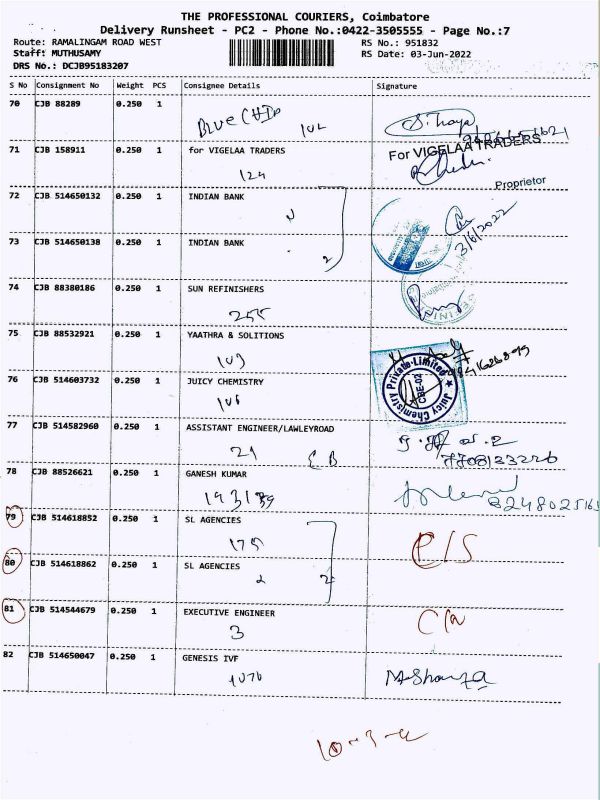 THE PROFESSIONAL COURIERS, Coimbatore
Delivery Runsheet - PC2 - Phone No.:0422-3505555 - Page No.:7
Route: RAMALINGAM ROAD WEST RS No.: 951832
Staff: MUTHUSAMY RS Date: 03-Jun-2022
DRS No.: DCJB95183207
S No Consignment No Weight PCS Consignee Details Signature
70 CJB 88289 0.250 1
BLUE CHIP
71 CJB 158911 0.250 1 for VIGELAA TRADERS For VIGELAA TRADERS
124
Proprietor
72 CJB 514650132 0.250 1 INDIAN BANK
3/6/2022
73 CJB 514650138 0.250 1 INDIAN BANK
2
74 CJB 88380186 0.250 1 SUN REFINISHERS
255
75 CJB 88532921 0.250 1 YAATHRA & SOLITIONS
109
76 CJB 514603732 0.250 1 JUICY CHEMISTRY
106
Juicy Chemistry Private Limited
CBE-02
77 CJB 514582960 0.250 1 ASSISTANT ENGINEER/LAWLEYROAD
21 EB
78 CJB 88526621 0.250 1 GANESH KUMAR
79 CJB 514618852 0.250 1 SL AGENCIES
175
80 CJB 514618862 0.250 1 SL AGENCIES
2 2
81 CJB 514544679 0.250 1 EXECUTIVE ENGINEER
3
82 CJB 514650047 0.250 1 GENESIS IVF
1076